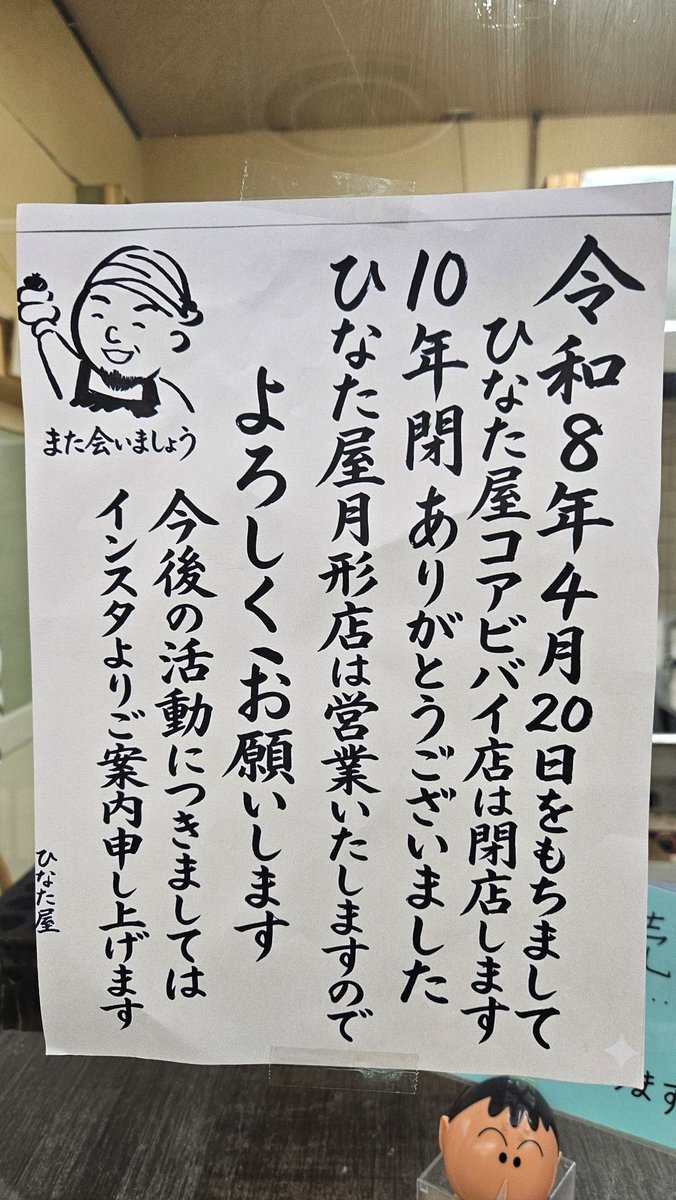 令和8年4月20日をもちまして
ひなた屋コアビバイ店は閉店します
10年閉 ありがとうございました
ひなた屋月形店は営業いたしますので
よろしくお願いします
今後の活動につきましては
インスタよりご案内申し上げます
また会いましょう
ひなた屋
ます